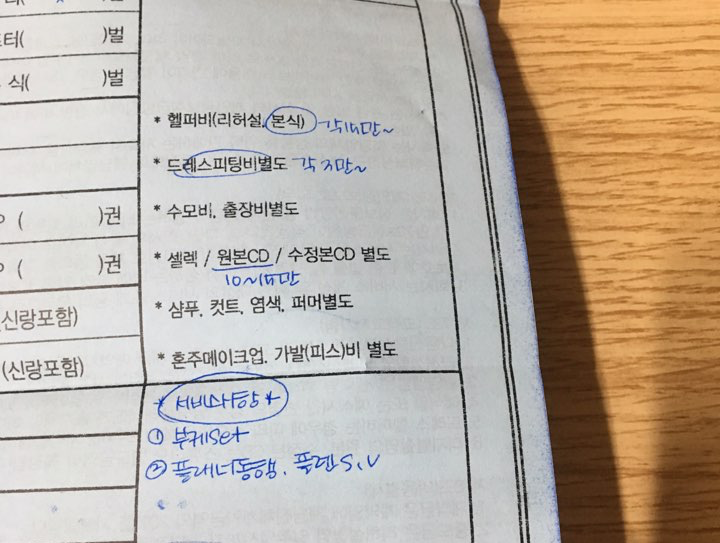 터(          )벌
식(          )벌
* 헬퍼비(리허설, 본식) 각15만~
* 드레스피팅비별도 각 3만~
(          )권
* 수모비, 출장비별도
(          )권
* 셀렉 / 원본CD / 수정본CD 별도
10~15만
신랑포함)
* 샴푸, 컷트, 염색, 퍼머별도
(신랑포함)
* 혼주메이크업, 가발(피스)비 별도
* 서비스사항 *
① 부케set
② 플래너동행, 플랜S.V